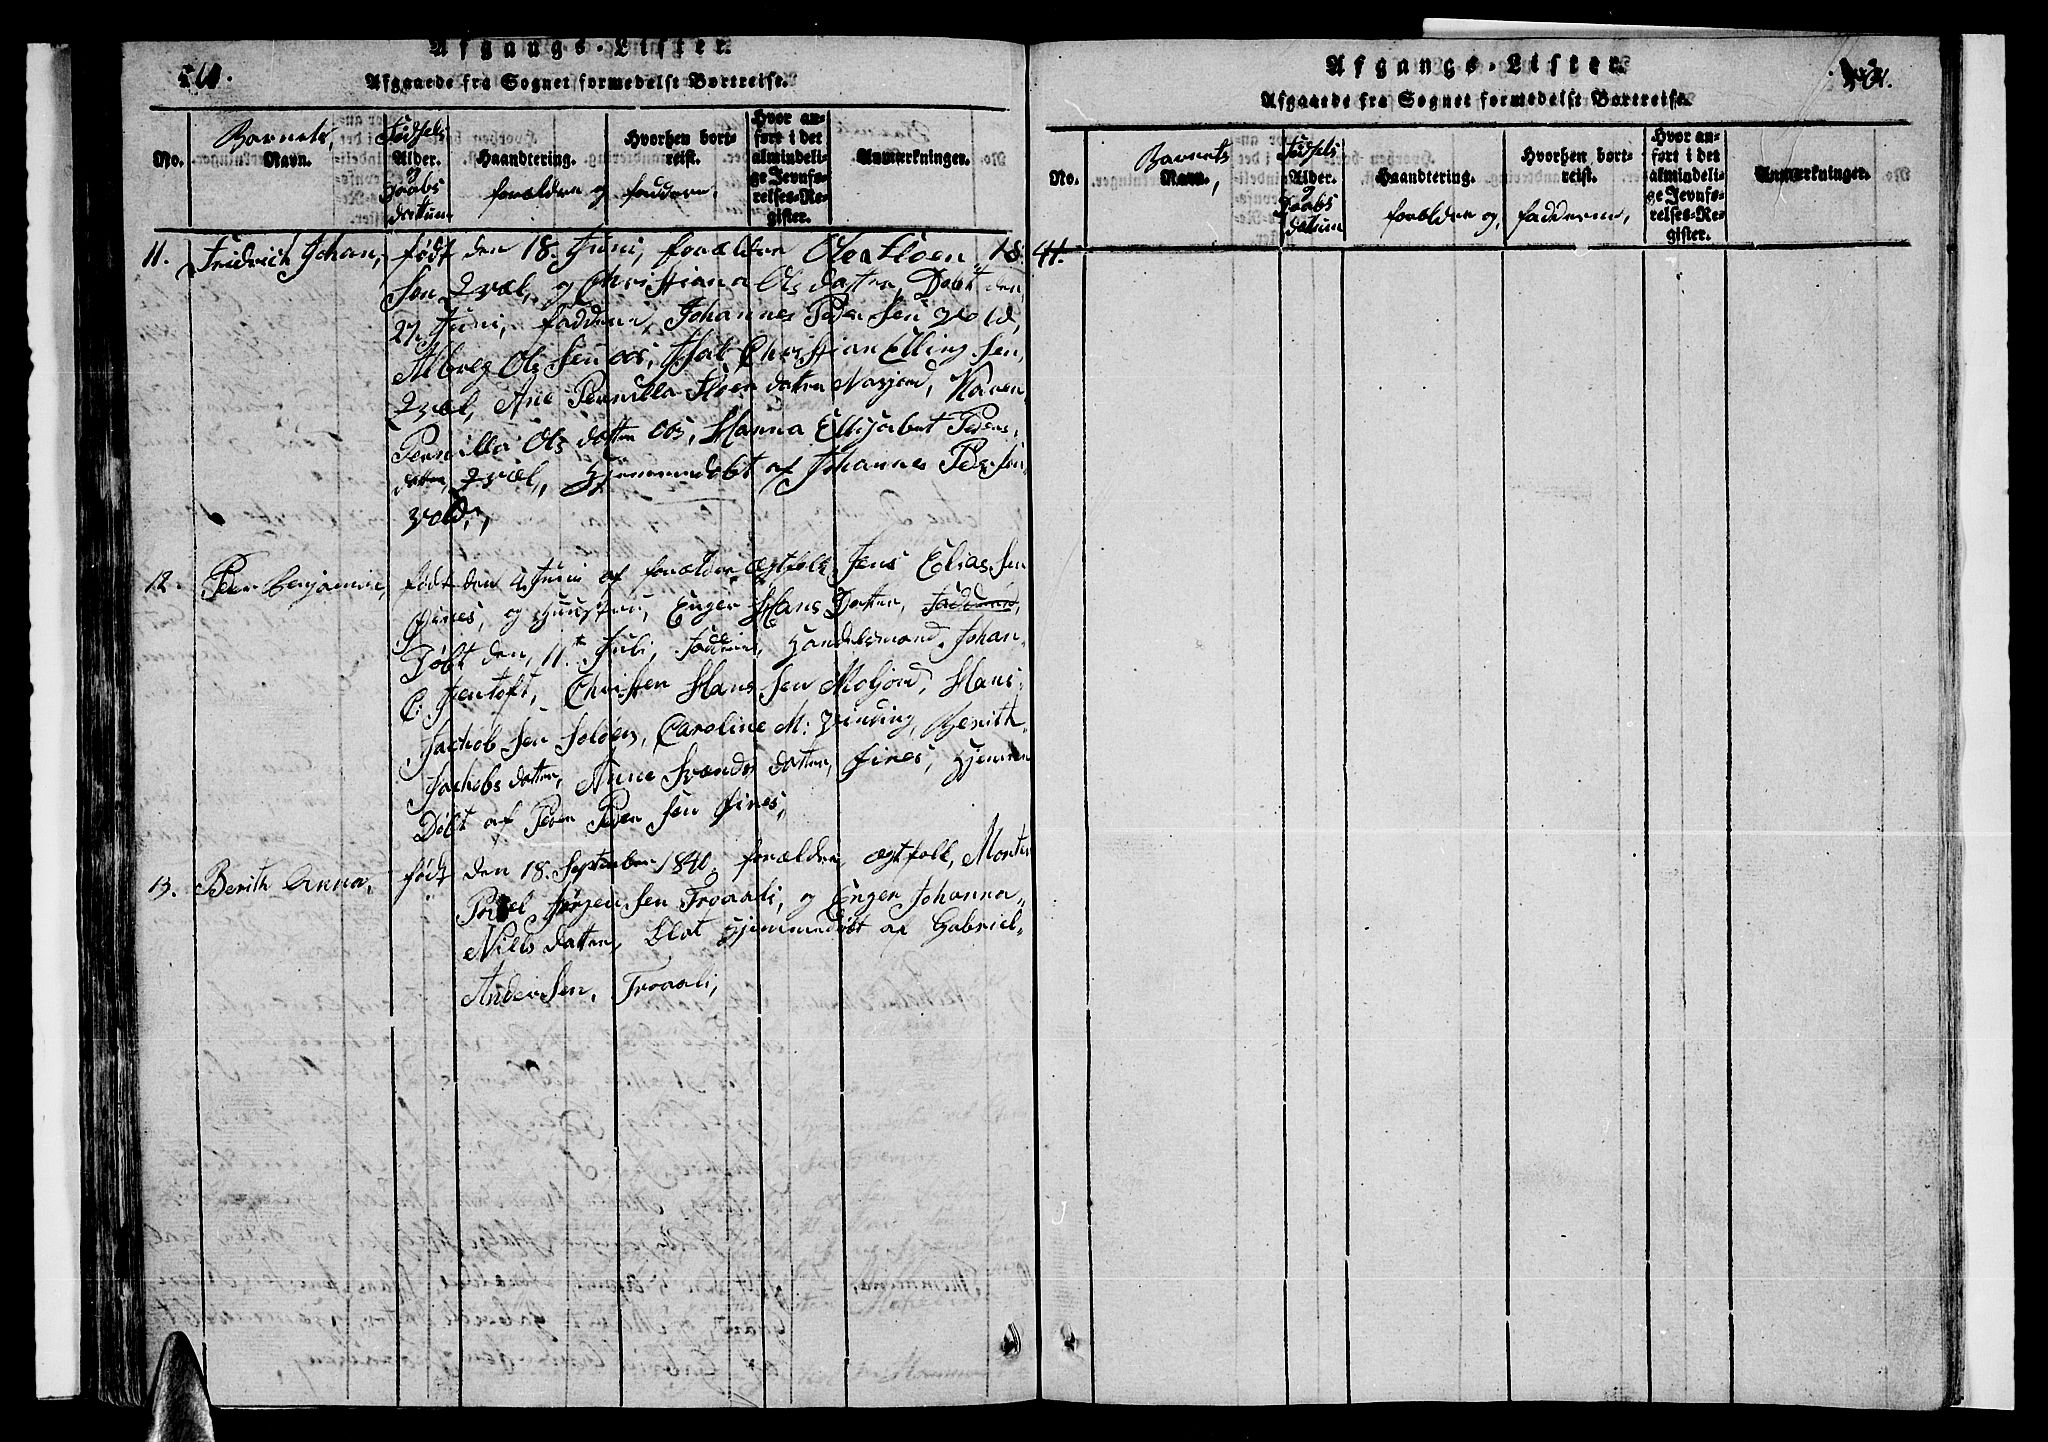 Afgangs-Lister.
Afgaaede fra Sognet formedelst Bortreise.
No.
Barnets,
Navn.
Fødsels
Alder.
og
Daabs
dattum
Haandtering.
forældre og
Hvorhen bort-
reist.
faddere.
Hvor an-
ført i det
almindeli-
ge Jevnfø-
relses-Re-
gister.
Anmærkninger.
11. Fridrich Johan, født den 18. Juni, forældre Ole 18
Sen Qvæl, og Christiana Ols datter, Døbt den,
27 Juni, faddere Johannes Peder Sen vold,
Ols Sen oos, Christian Elling Sen,
Qvæl, Ane Pernilla datter Nasjord, Karen,
Pernilla Ols datter oos, Hanna Ellisabet Peders,
datter, Qvæl, Hjemmedøbt af Johannes Peder Sen
vold,
12. Peder Benjamin, født den 4 Juni af forældre Ægtfolk Jens Elias Sen
Øines, og Hustru, Enger Hans Datter, Faddere,
Døbt den, 11te Juli, Faddere, Handelsmand, Johan
C: Jentoft, Christen Hans Sen Moljord, Hans
Jachob Sen Soløen, Caroline M: Vinving, Berith
Jachobs datter, Anne Svends datter, Øines, Hjemme
Døbt af Peder Peder Sen Øines,
13. Berith Anna, født den 18. September 1840, forældre, ægtfolk, Morten
Sen Troaali, og Enger Johanna
Nills datter, blot Hjemmedøbt af Gabriel
Ander Sen, Troaali,
Afgangs-Lister.
Afgaaede fra Sognet formedelst Bortreise.
41.
No.
Barnets
Navn,
Fødsels
Alder.
og
Daabs
datum
Haandtering.
forældre og,
Hvorhen bort-
reist.
fadderne,
Hvor an-
ført i det
almindeli-
ge Jevnfø-
relses-Re-
gister.
Anmærkninger.